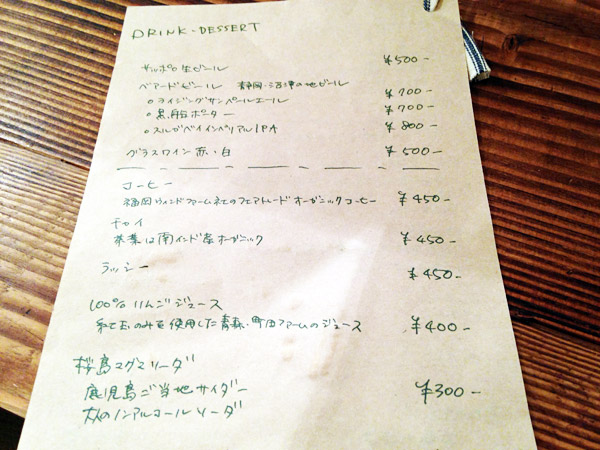 DRINK・DESSERT
サッポロ生ビール ¥500-
ベアードビール 静岡・沼津の地ビール
○ライジングサンペールエール ¥700-
○黒船ポーター ¥700-
○スルガベイインペリアルIPA ¥800-
グラスワイン 赤・白 ¥500-
コーヒー
福岡ウィンドファーム社のフェアトレードオーガニックコーヒー ¥450-
チャイ
茶葉は南インド産オーガニック ¥450-
ラッシー ¥450-
100%りんごジュース
紅玉のみを使用した青森・町田ファームのジュース ¥400-
桜島マグマソーダ
鹿児島ご当地サイダー ¥300-
大人のノンアルコールソーダ